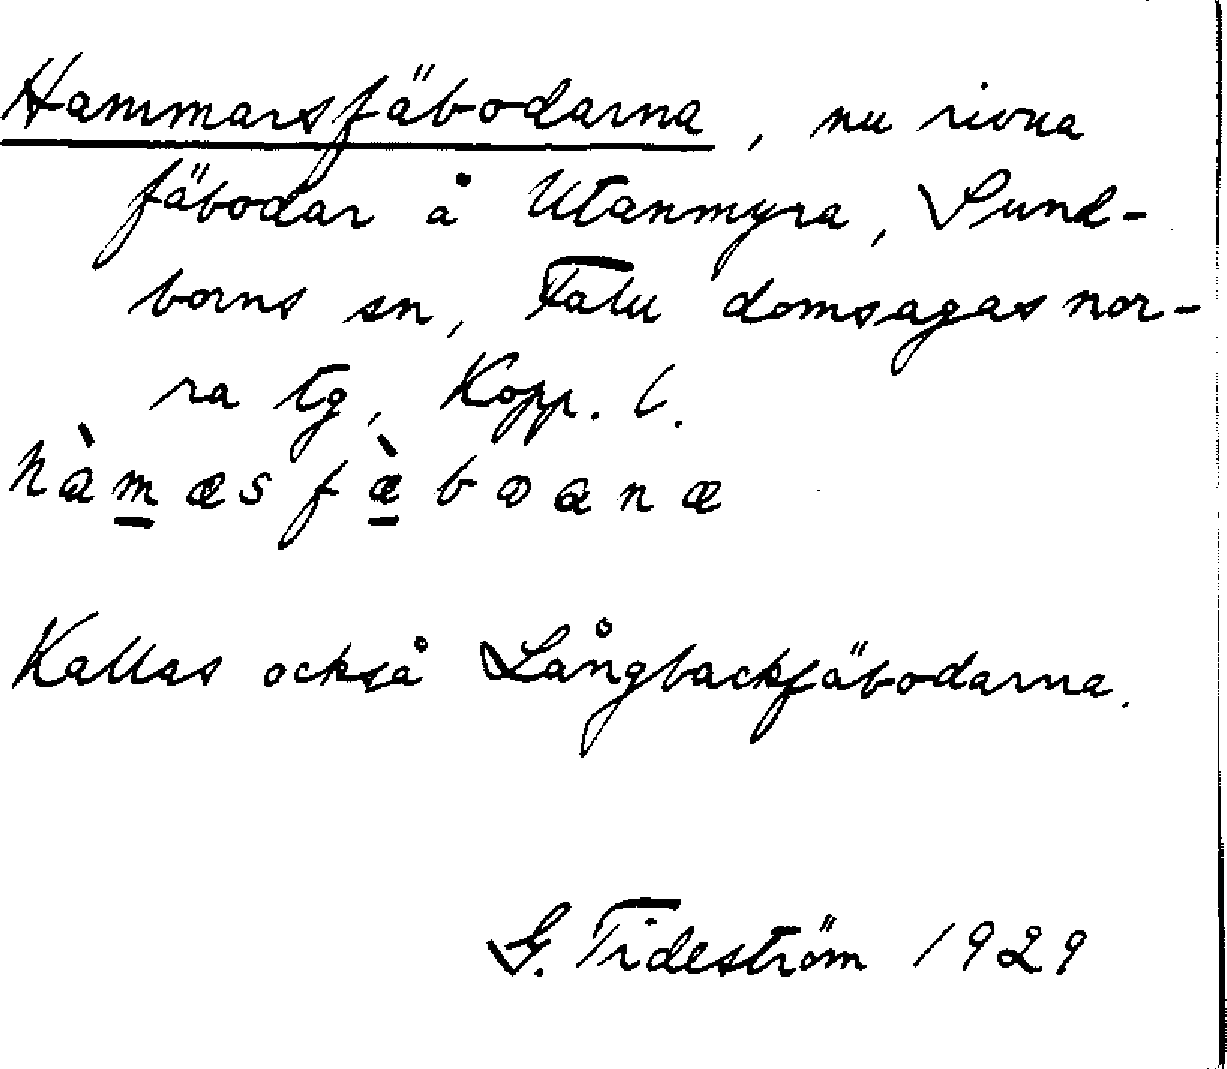 Hammarsfäbodarna, nu rivna
fäbodar å Utanmyra, Sund-
borns sn, Falu domsagas nor-
ra tg, Kopp. l.
hàmæsfæ̀boanæ
Kallas också Långbackfäbodarna.
G. Tideström 1929